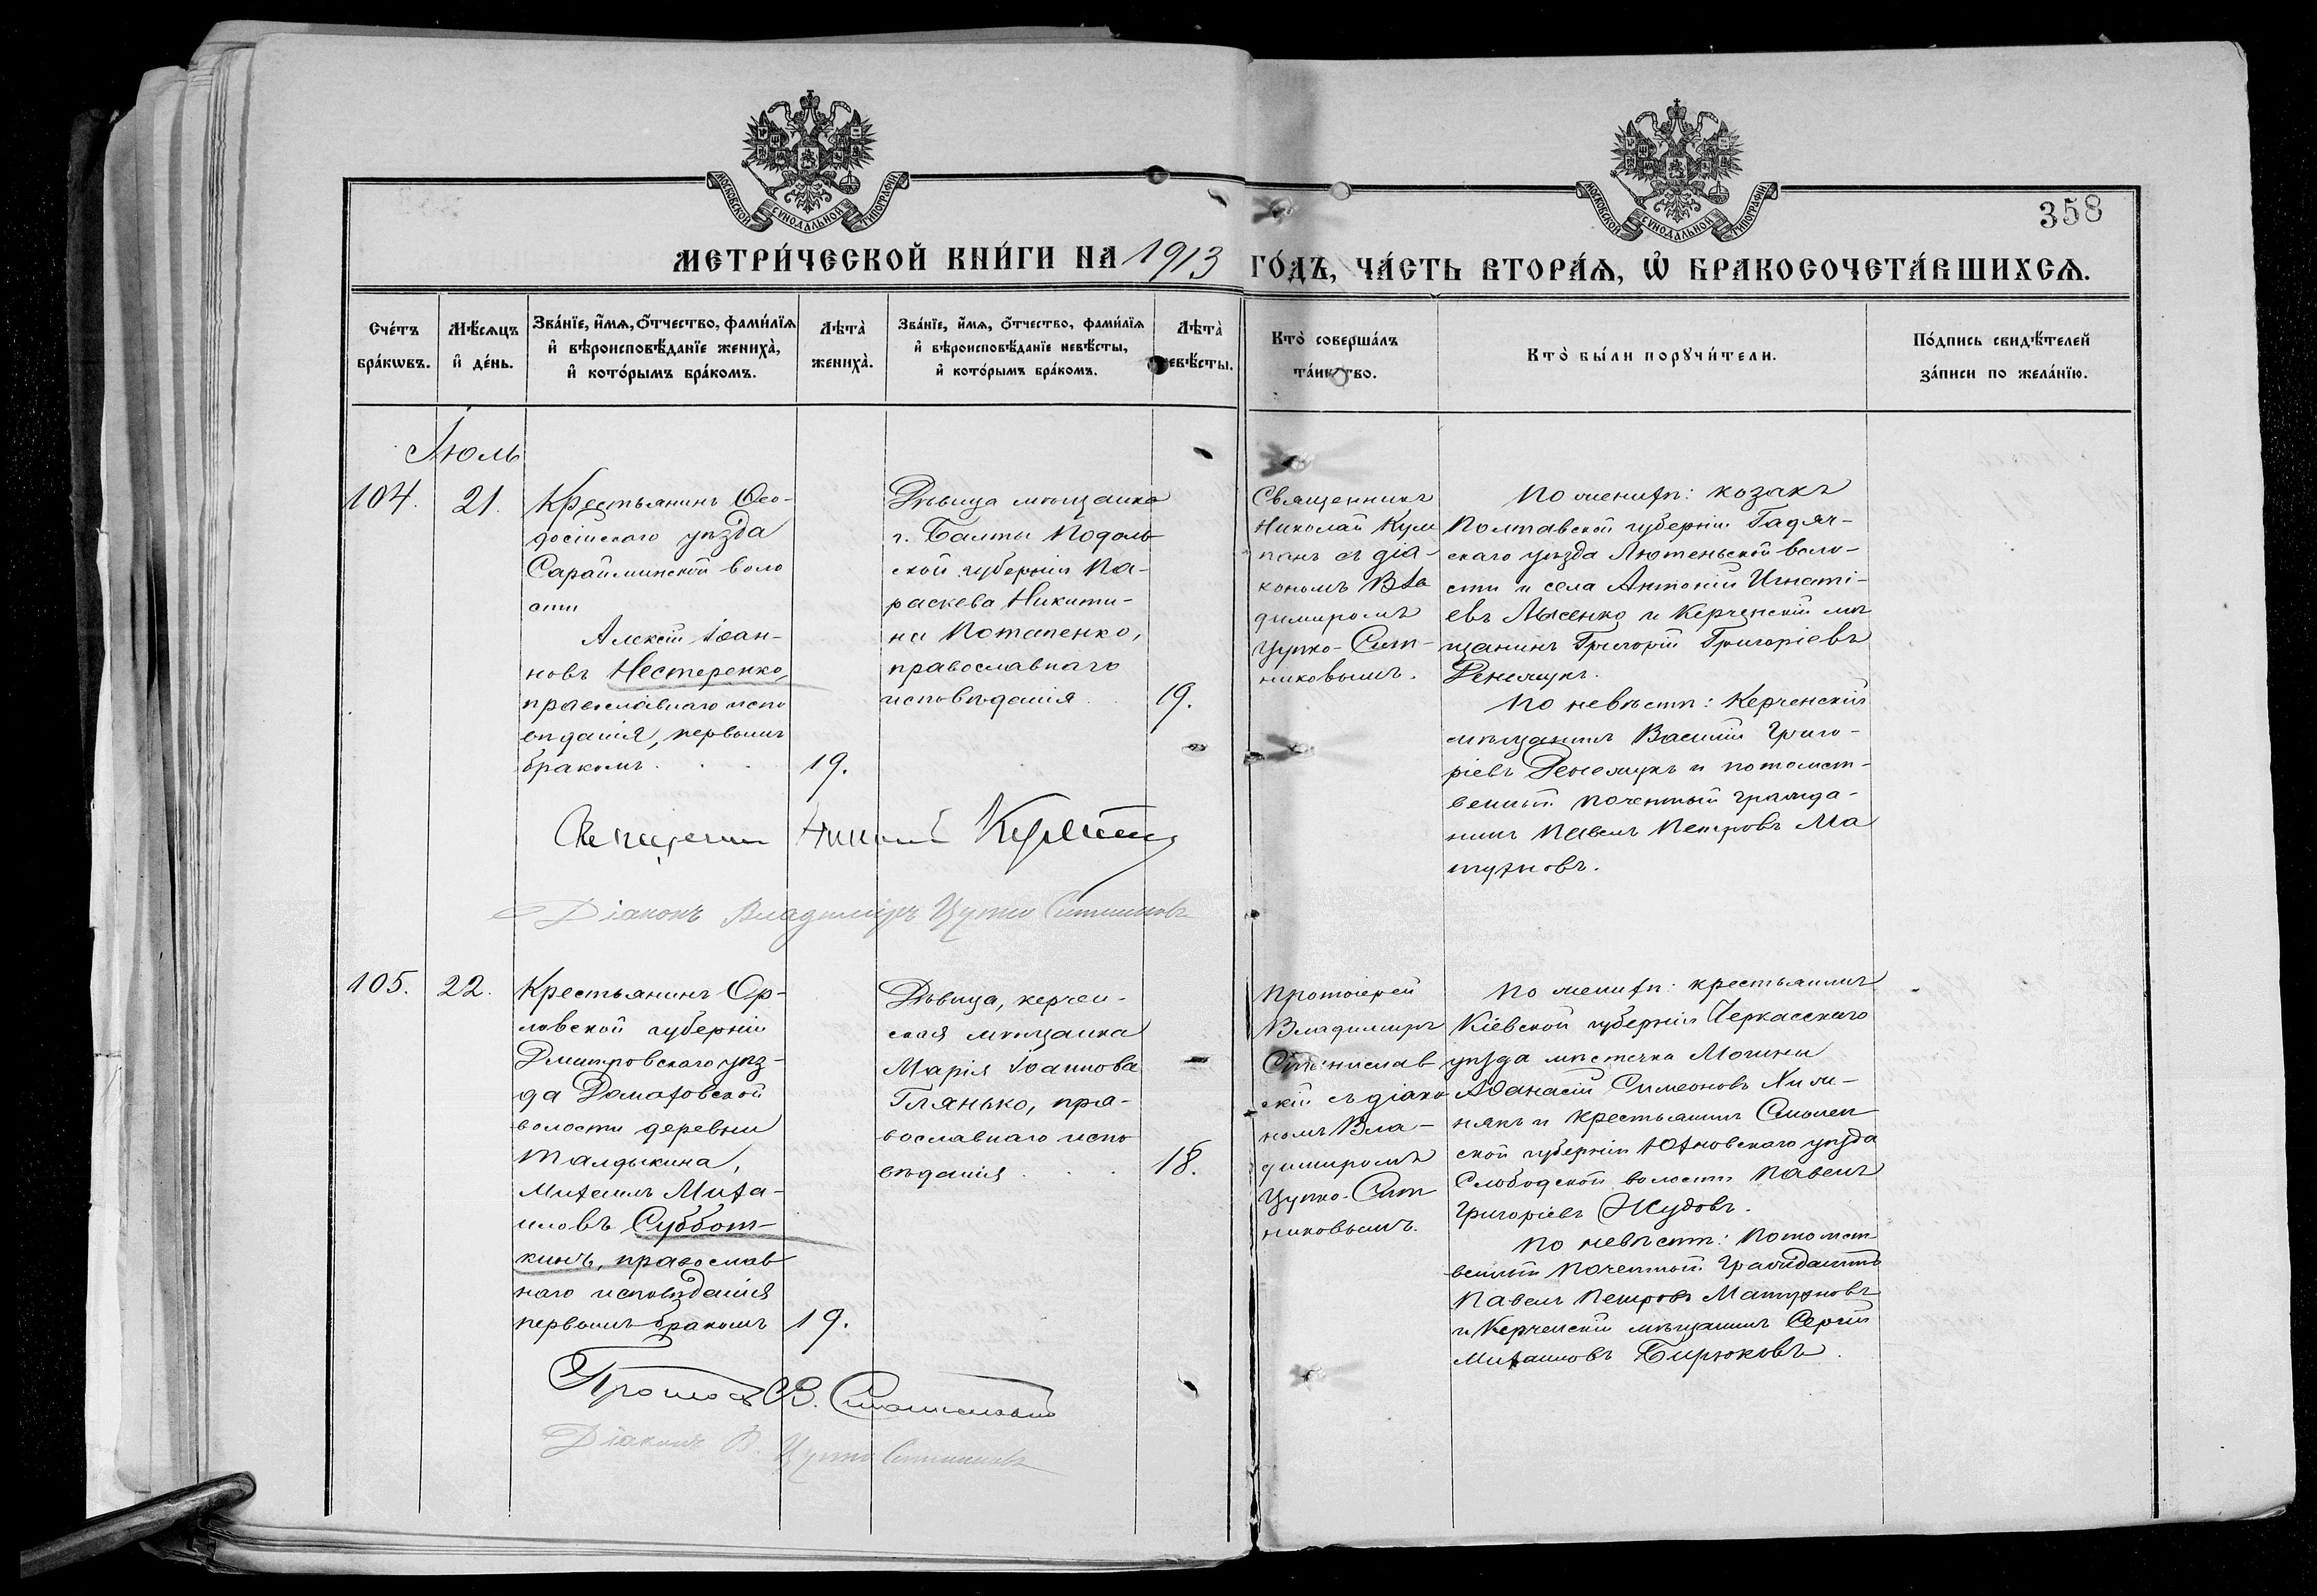 МОСКОВСКОЙ СУНОДАЛЬНОЙ ТИПОГРАФІИ
МОСКОВСКОЙ СУНОДАЛЬНОЙ ТИПОГРАФІИ
358
МЕТРИ́ЧЕСКОЙ КНИ́ГИ НА 1913 ГО́ДЪ, ЧА́СТЬ ВТОРА́Ѧ, Ѽ БРАКОСОЧЕТА́ВШИХСѦ.
Сче́тъ бра́кѡвъ.
Мѣ́сѧцъ и҆ де́нь.
Зва́нїе, и҆́мѧ, ѻ҆́тчество, фами́лїѧ
и҆ вѣроисповѣ́данїе жениха̀,
и҆ кото́рымъ бра́комъ.
Лѣта̀ жениха̀.
Зва́нїе, и҆́мѧ, ѻ҆́тчество, фами́лїѧ
и҆ вѣроисповѣ́данїе невѣ́сты,
и҆ кото́рымъ бра́комъ.
Лѣта̀ невѣ́сты.
Кто̀ соверша́лъ
та́инство.
Кто̀ бы́ли порꙋчи́тели.
По́дпись свидѣ́телей
за́писи по жела́нїю.
Іюль
104.
21.
Крестьянинъ Ѳео-
досійскаго уѣзда
Сарайминской воло
сти
Алексій Іоан-
новъ Нестеренко,
православнаго испо
вѣданія, первымъ
бракомъ
19.
Дѣвица мѣщанка
г. Балты Подоль
ской губерніи Па-
раскева Никити-
на Потапенко,
православнаго
исповѣданія
19.
Священникъ
Николай Кул
панъ съ діа-
кономъ Вла
димиромъ
Цупко-Сит-
никовымъ.
По женихѣ: козакъ
Полтавской губерніи Гадяч-
скаго уѣзда Лютеньской воло-
сти и села Антоній Игнаті-
евъ Лысенко и Керченскій мѣ
щанинъ Григорій Григоріевъ
По невѣстѣ: Керченскій
мѣщанинъ Василій Григо-
ріевъ и потомст-
венный почетный гражда-
нинъ Павелъ Петровъ Ма
тухновъ.
Священникъ Николай
Діаконъ Владимиръ Цупко Ситниковъ
105.
22.
Крестьянинъ Ор-
ловской губерніи
Дмитровскаго уѣз-
да Домаховской
волости деревни
Талдыкина,
Михаилъ Миха-
иловъ Суббот-
кинъ, православ
наго исповѣданія
первымъ бракомъ
19.
Дѣвица, керчен-
ская мѣщанка
Марія Іоаннова
Глянько, пра-
вославнаго испо
вѣданія
18.
Протоіерей
Владимиръ
Станислав
скій съ діако
номъ Вла-
димиромъ
Цупко-Сит
никовымъ.
По женихѣ: крестьянинъ
Кіевской губерніи Черкасскаго
уѣзда мѣстечка
Аѳанасій Симеоновъ Хиж-
някъ и крестьянинъ Смолен
ской губерніи Юхновскаго уѣзда
Слободской волости Павелъ
Григоріевъ Жудовъ.
По невѣстѣ: Потомст
венный почетный Гражданинъ
Павелъ Петровъ Матухновъ
и Керченскій мѣщанинъ Сергій
Михаиловъ Бирюковъ.
В. Станиславскій
Діаконъ В. Цупко Ситниковъ